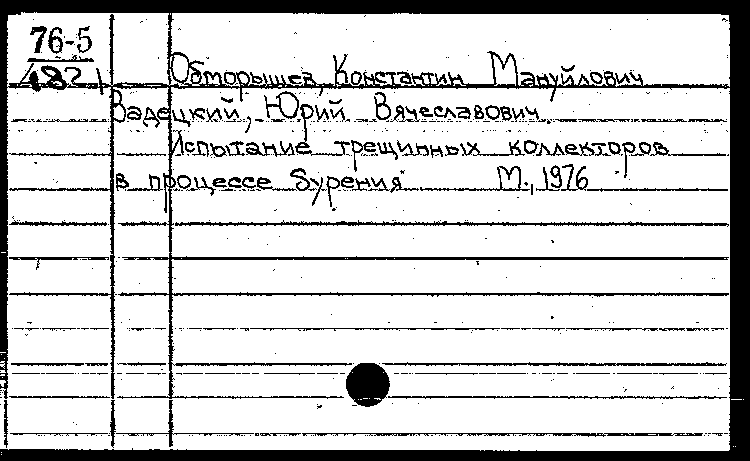 76-5
482
Обморышев, Константин Мануйлович
Вадецкий, Юрий Вячеславович.
Испытание трещинных коллекторов
в процессе бурения. М., 1976